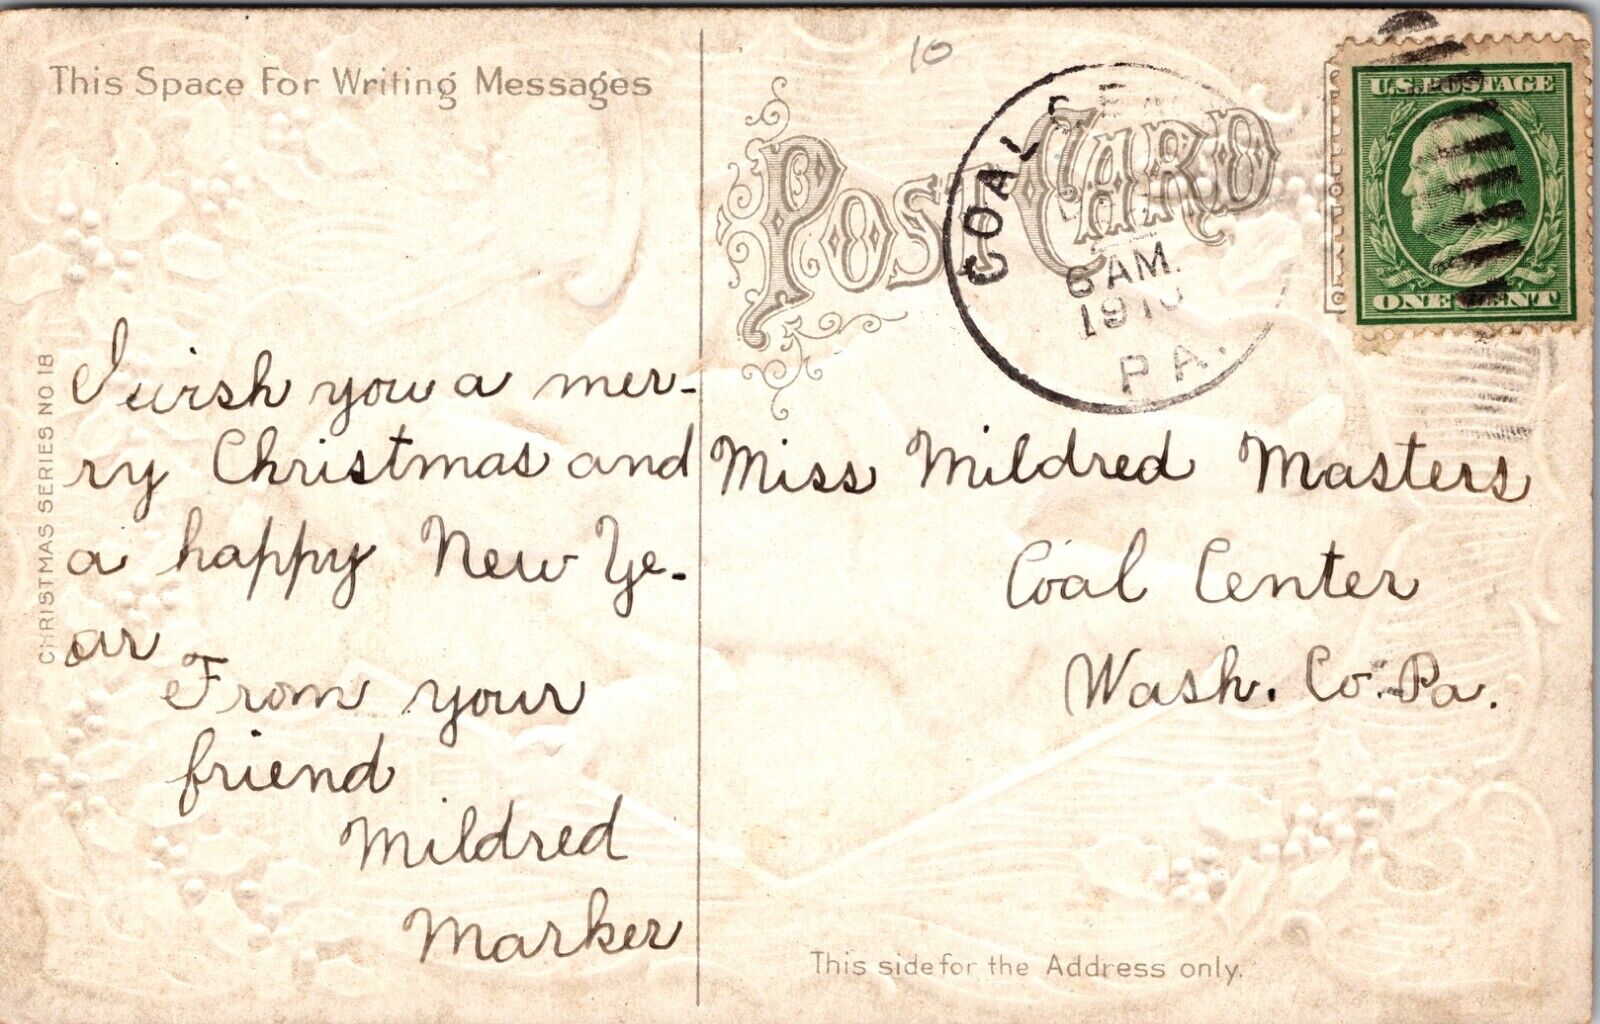 This Space For Writing Messages
10
POST CARD
COAL
6 AM.
PA.
U.S. POSTAGE
ONE CENT
CHRISTMAS SERIES NO 18
I wish you a mer-
ry Christmas and
a happy New Ye-
ar
From your
friend
Mildred
Marker
Miss Mildred Masters
Coal Center
Wash. Co. Pa.
This side for the Address only.